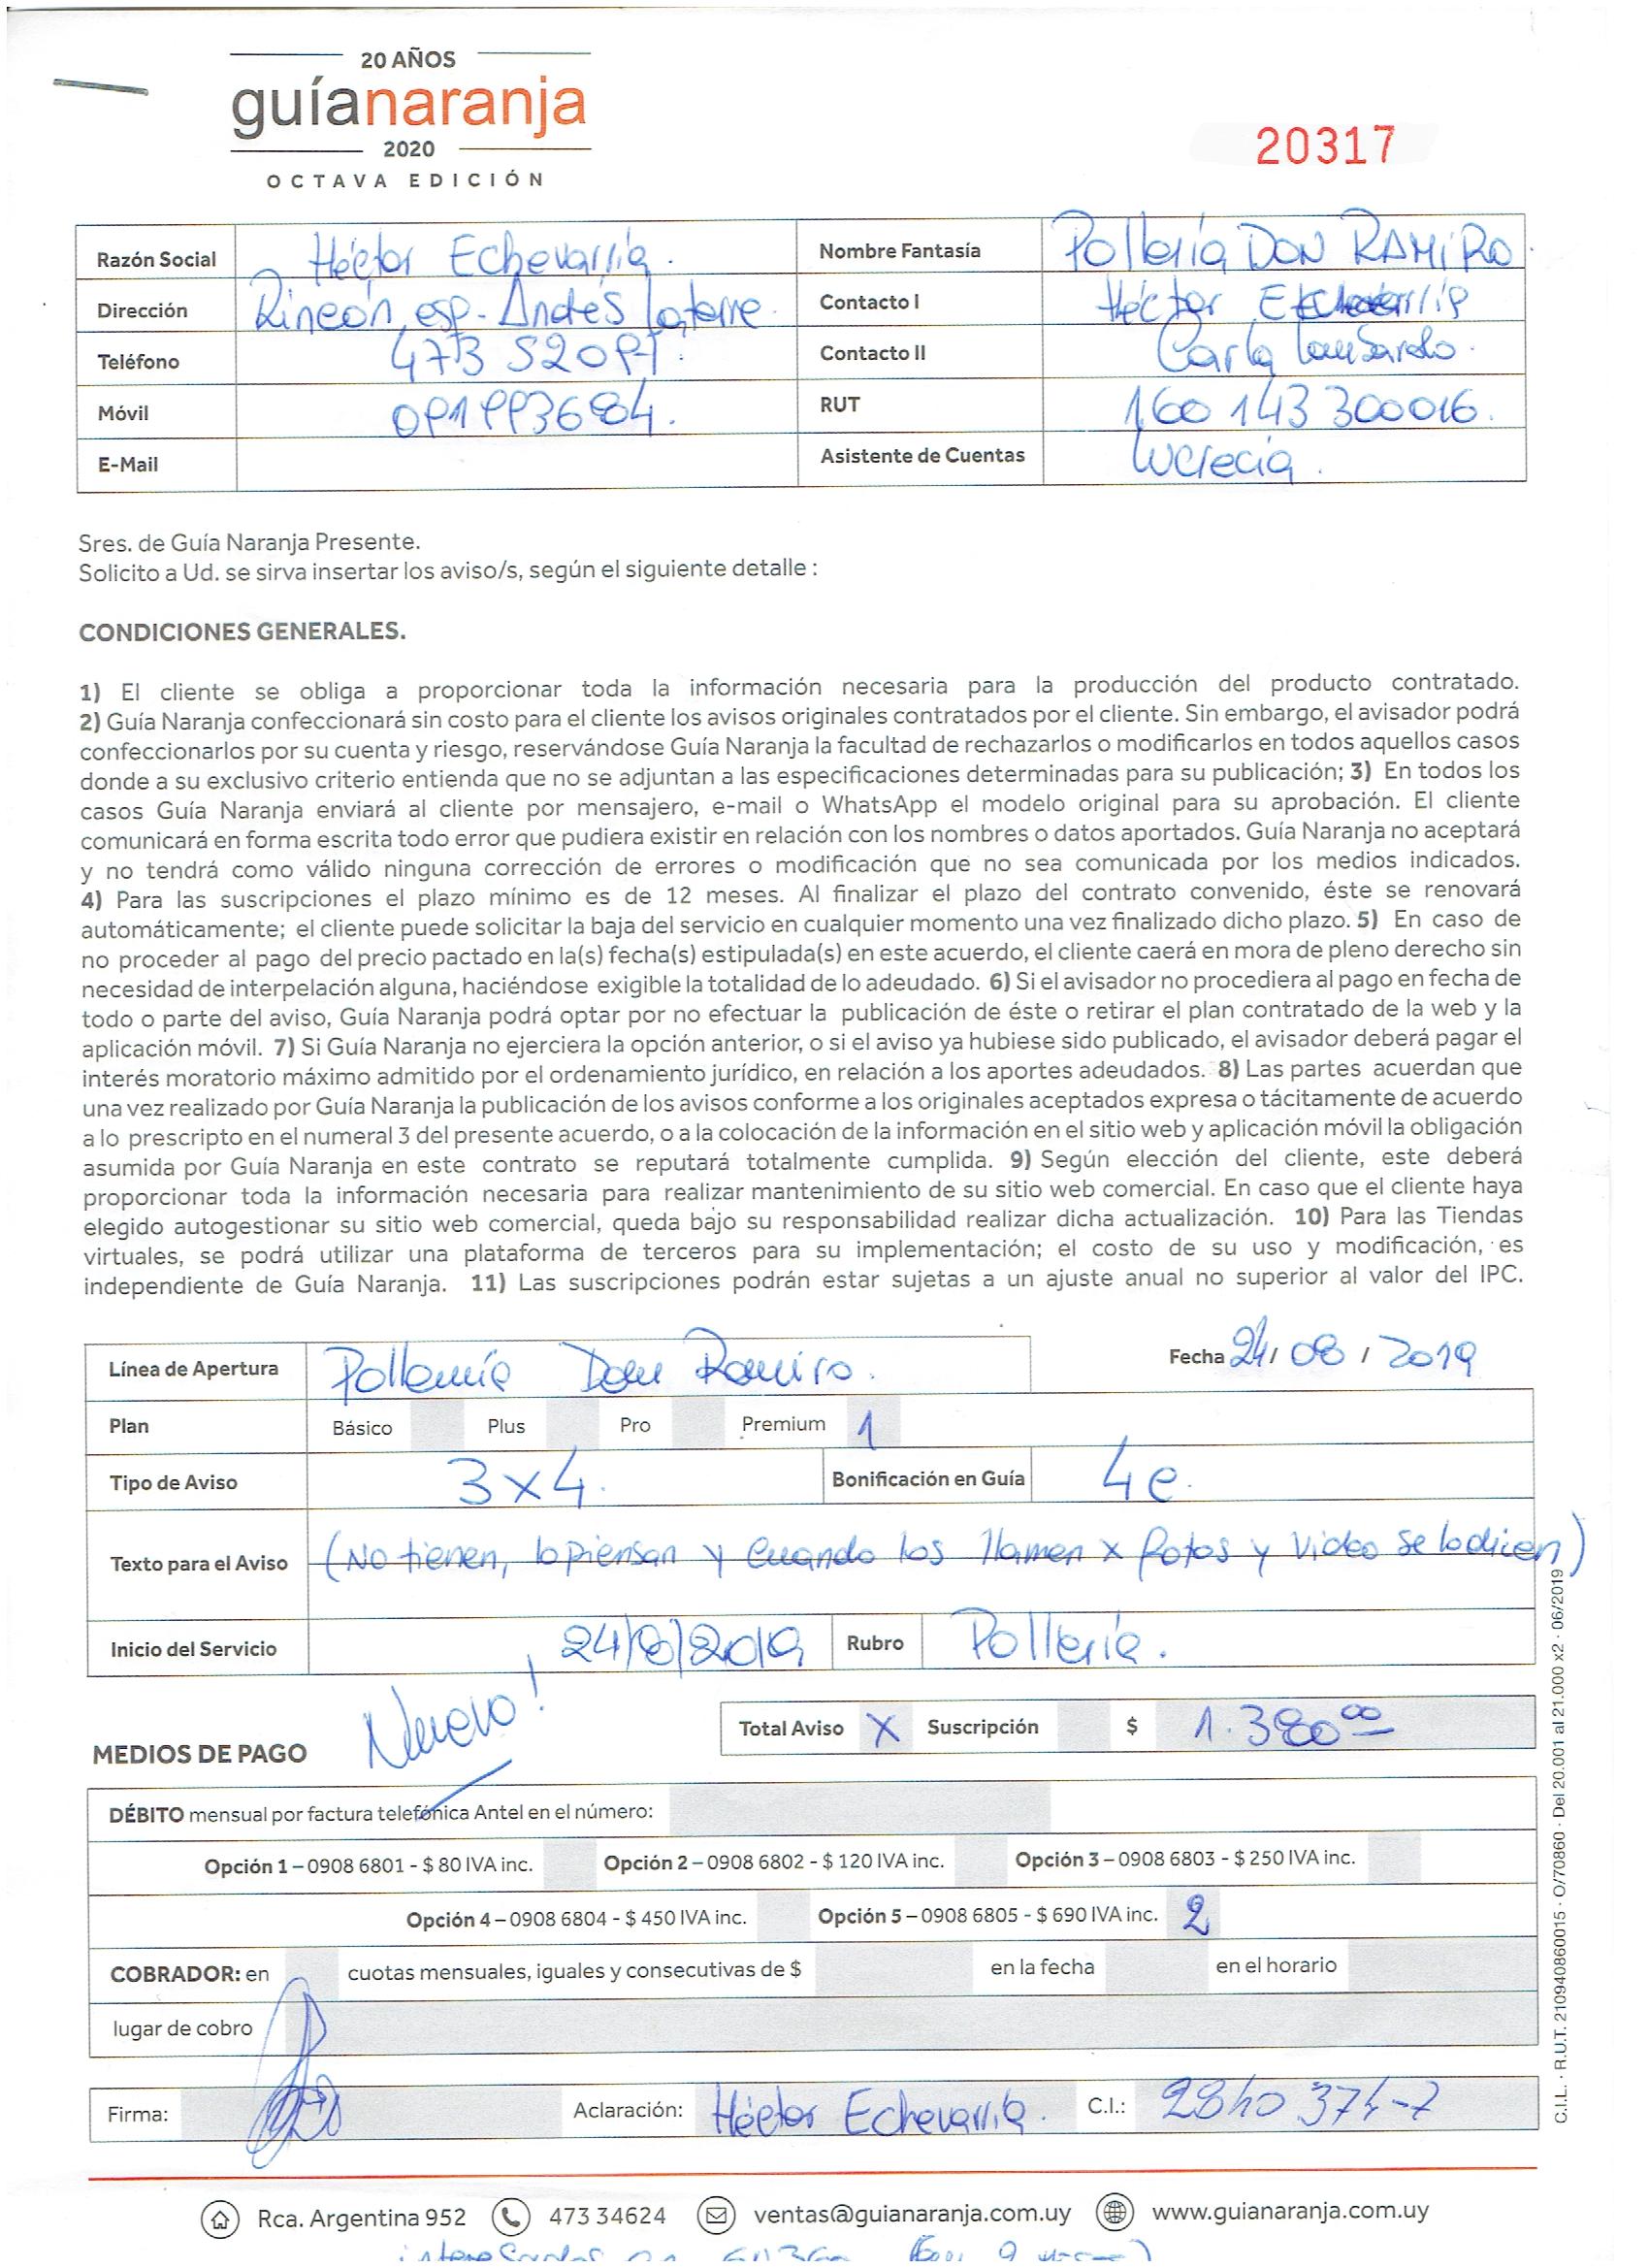 20 AÑOS
guíanaranja
2020
OCTAVA EDICIÓN
20317
Razón Social Héctor Echevarría. Nombre Fantasía Pollería DON RAMIRO
Dirección Rincón esp. Andrés Latorre. Contacto I Héctor
Teléfono 473 52091. Contacto II Carla Lombardo.
Móvil 091993684. RUT 160 143 300016.
E-Mail Asistente de Cuentas Lucrecia.
Sres. de Guía Naranja Presente.
Solicito a Ud. se sirva insertar los aviso/s, según el siguiente detalle :
CONDICIONES GENERALES.
1) El cliente se obliga a proporcionar toda la información necesaria para la producción del producto contratado.
2) Guía Naranja confeccionará sin costo para el cliente los avisos originales contratados por el cliente. Sin embargo, el avisador podrá
confeccionarlos por su cuenta y riesgo, reservándose Guía Naranja la facultad de rechazarlos o modificarlos en todos aquellos casos
donde a su exclusivo criterio entienda que no se adjuntan a las especificaciones determinadas para su publicación; 3) En todos los
casos Guía Naranja enviará al cliente por mensajero, e-mail o WhatsApp el modelo original para su aprobación. El cliente
comunicará en forma escrita todo error que pudiera existir en relación con los nombres o datos aportados. Guía Naranja no aceptará
y no tendrá como válido ninguna corrección de errores o modificación que no sea comunicada por los medios indicados.
4) Para las suscripciones el plazo mínimo es de 12 meses. Al finalizar el plazo del contrato convenido, éste se renovará
automáticamente; el cliente puede solicitar la baja del servicio en cualquier momento una vez finalizado dicho plazo. 5) En caso de
no proceder al pago del precio pactado en la(s) fecha(s) estipulada(s) en este acuerdo, el cliente caerá en mora de pleno derecho sin
necesidad de interpelación alguna, haciéndose exigible la totalidad de lo adeudado. 6) Si el avisador no procediera al pago en fecha de
todo o parte del aviso, Guía Naranja podrá optar por no efectuar la publicación de éste o retirar el plan contratado de la web y la
aplicación móvil. 7) Si Guía Naranja no ejerciera la opción anterior, o si el aviso ya hubiese sido publicado, el avisador deberá pagar el
interés moratorio máximo admitido por el ordenamiento jurídico, en relación a los aportes adeudados. 8) Las partes acuerdan que
una vez realizado por Guía Naranja la publicación de los avisos conforme a los originales aceptados expresa o tácitamente de acuerdo
a lo prescripto en el numeral 3 del presente acuerdo, o a la colocación de la información en el sitio web y aplicación móvil la obligación
asumida por Guía Naranja en este contrato se reputará totalmente cumplida. 9) Según elección del cliente, este deberá
proporcionar toda la información necesaria para realizar mantenimiento de su sitio web comercial. En caso que el cliente haya
elegido autogestionar su sitio web comercial, queda bajo su responsabilidad realizar dicha actualización. 10) Para las Tiendas
virtuales, se podrá utilizar una plataforma de terceros para su implementación; el costo de su uso y modificación, es
independiente de Guía Naranja. 11) Las suscripciones podrán estar sujetas a un ajuste anual no superior al valor del IPC.
Línea de Apertura Pollería Don Ramiro. Fecha 24/ 08 / 2019
Plan Básico Plus Pro Premium 1
Tipo de Aviso 3x4. Bonificación en Guía 4e.
Texto para el Aviso (No tienen, lo piensan y cuando los llamen x fotos y video se lo dicen)
Inicio del Servicio 24/8/2019 Rubro Pollería.
Nuevo!
Total Aviso X Suscripción $ 1.380 00
MEDIOS DE PAGO
DÉBITO mensual por factura telefónica Antel en el número:
Opción 1 – 0908 6801 - $ 80 IVA inc. Opción 2 – 0908 6802 - $ 120 IVA inc. Opción 3 – 0908 6803 - $ 250 IVA inc.
Opción 4 – 0908 6804 - $ 450 IVA inc. Opción 5 – 0908 6805 - $ 690 IVA inc. 2
COBRADOR: en cuotas mensuales, iguales y consecutivas de $ en la fecha en el horario
lugar de cobro
Firma: Aclaración: Héctor Echevarría. C.I.: 2840 374-7
C.I.L. · R.U.T. 210940860015 · O/70860 · Del 20.001 al 21.000 x2 · 06/2019
Rca. Argentina 952 473 34624 ventas@guianaranja.com.uy www.guianaranja.com.uy